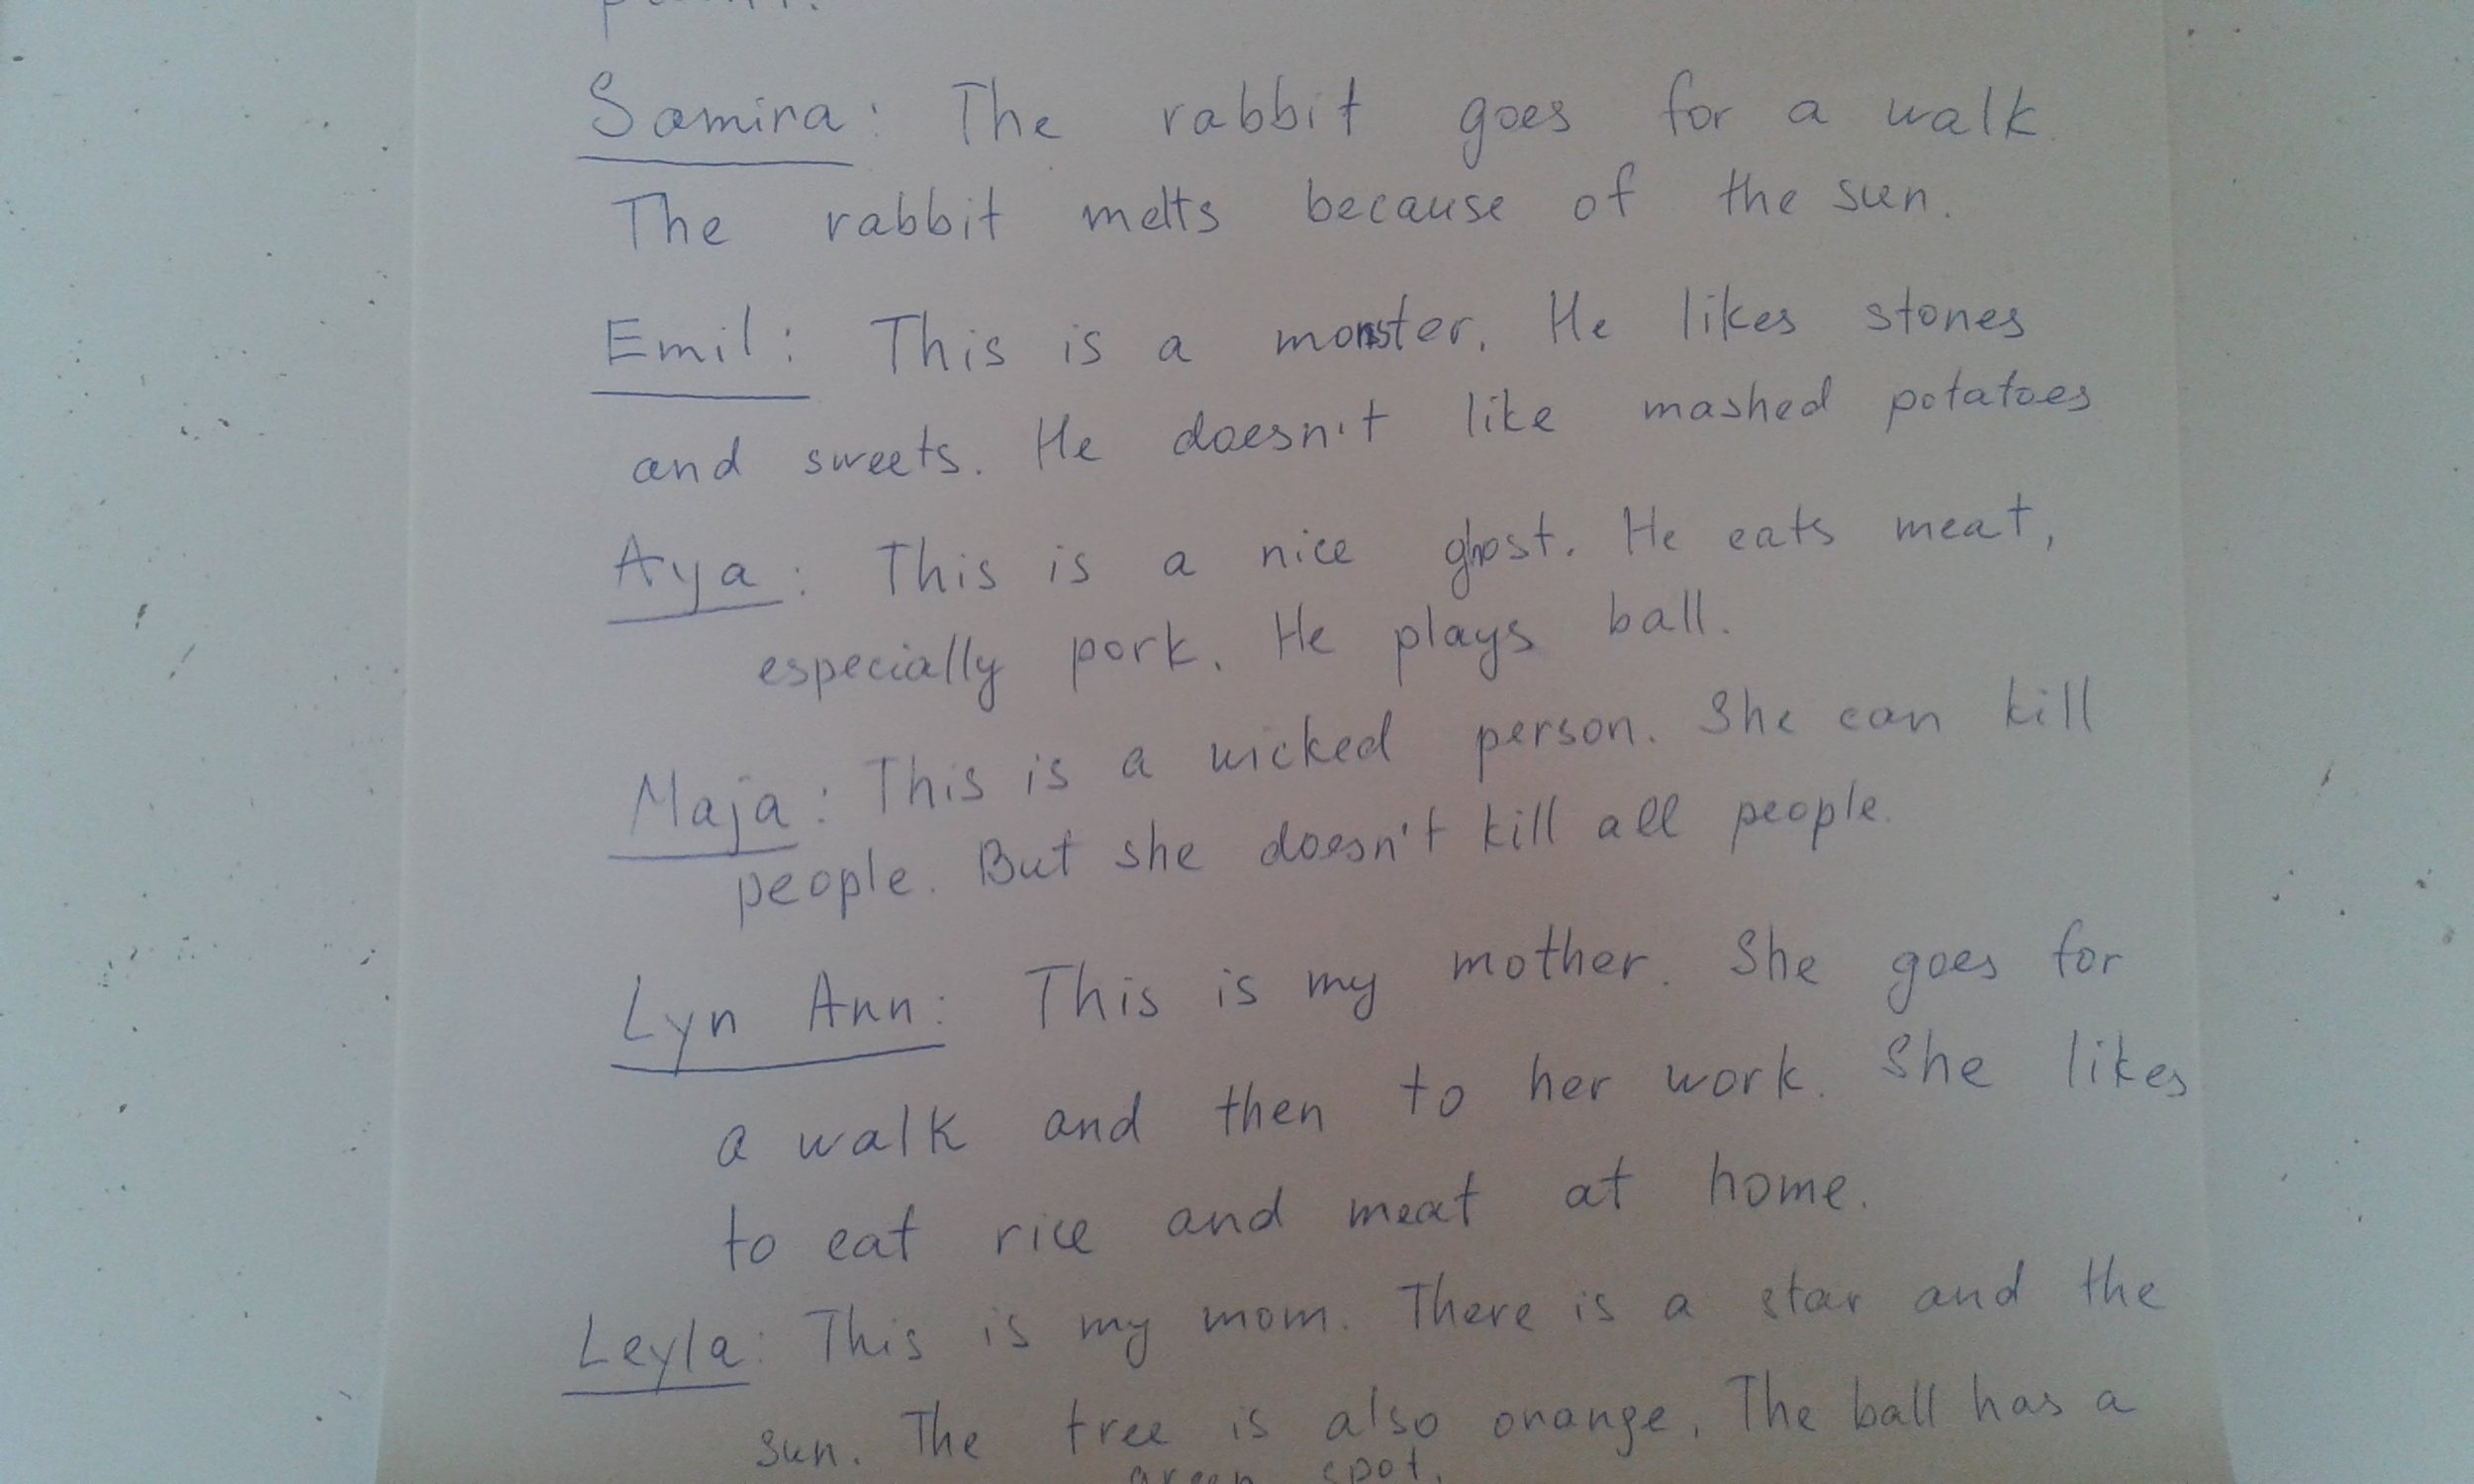 Samira: The rabbit goes for a walk.
The rabbit melts because of the sun.
Emil: This is a monster. He likes stones
and sweets. He doesn't like mashed potatoes
Aya: This is a nice ghost. He eats meat,
especially pork. He plays ball.
Maja: This is a wicked person. She can kill
people. But she doesn't kill all people.
Lyn Ann: This is my mother. She goes for
a walk and then to her work. She likes
to eat rice and meat at home.
Leyla: This is my mom. There is a star and the
sun. The tree is also orange. The ball has a
green spot.